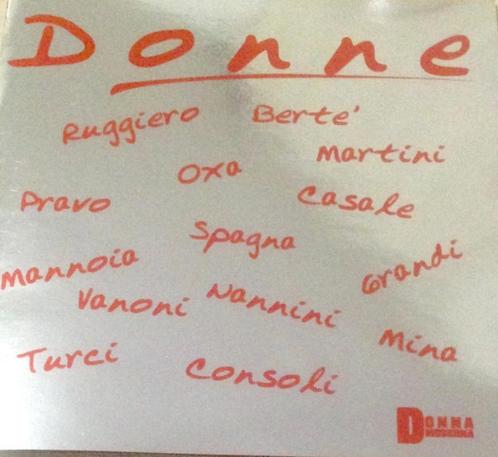 Donne
Ruggiero Berte'
Martini
Oxa
Casale
Pravo
Spagna
Grandi
Mannoia
Vanoni Nannini
Mina
Turci
Consoli
DONNA
MODERNA